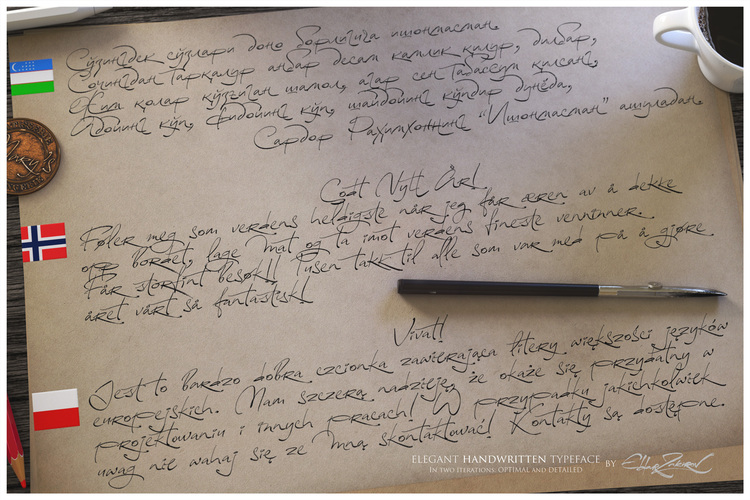 Сўзингдек сўзлари доно борлигига ишонмасман.
Сочингдан тарқалур анбар десам камлик қилур, дилбар,
қолар қўзғалган шамол, агар сен табассум қилсанг,
Адойинг кўп, Фидойинг кўп, шайдойинг кўпдир дунёда,
Сардор Раҳимхоннинг "Ишонмасман" ашуладан.
Godt Nytt År!
Føler meg som verdens heldigste når jeg får æren av å dekke
opp bordet, lage mat og ta imot verdens fineste venninner.
Får storfint besøk!! Tusen takk til alle som var med på å gjøre
året vårt så fantastisk!
Vivat!
Jest to bardzo dobra czcionka zawierająca litery większości języków
europejskich. Mam szczerą nadzieję, że okaże się przydatny w
projektowaniu i innych pracach! W przypadku jakichkolwiek
uwag nie wahaj się ze mną skontaktować! Kontakty są dostępne.
ELEGANT HANDWRITTEN TYPEFACE BY
IN TWO ITERATIONS: OPTIMAL AND DETAILED